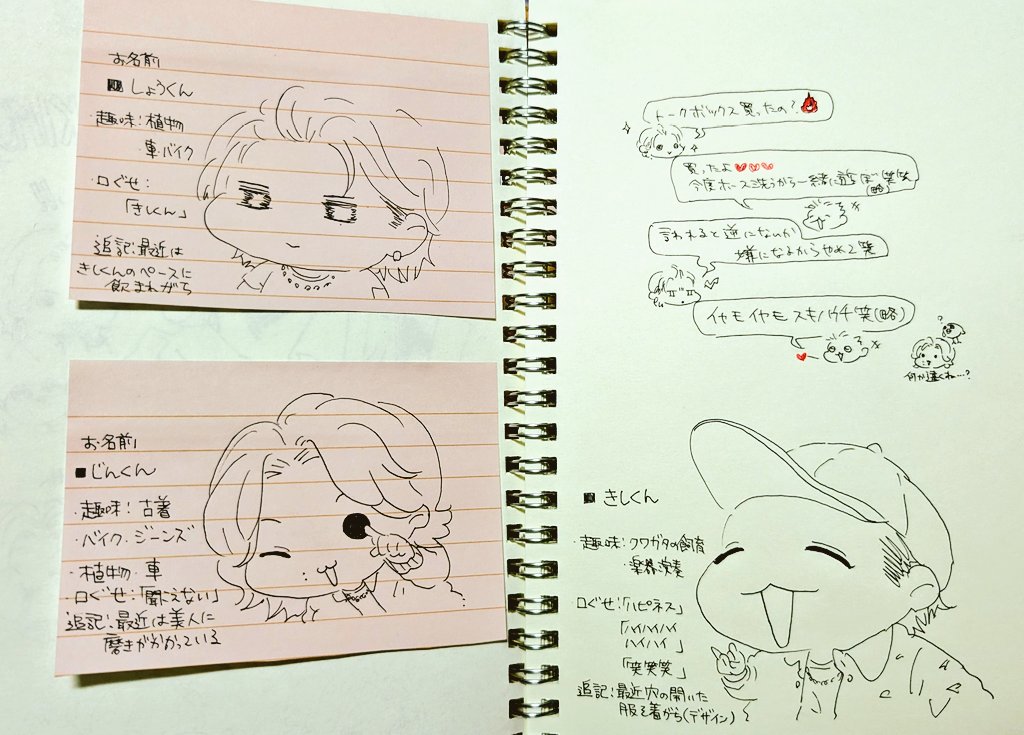 お名前
■ しょうくん
・趣味:植物
・車・バイク
・口ぐせ:
「きしくん」
追記:最近は
きしくんのペースに
飲まれがち
お名前
■ じんくん
・趣味:古着
・バイク・ジーンズ
・植物・車
・口ぐせ:「聞こえない」
追記:最近は美人に
磨きがかかっている
トークボックス買ったの?
買ったよ
今度ホース洗うから一緒に遊ぼ笑笑
(略)
言われると逆になんか
嫌になるからやめて笑
イヤモイヤモスキノウチ笑(略)
?
何か違くね…?
■ きしくん
・趣味:クワガタの飼育
・楽器演奏
口ぐせ:「ハピネス」
「ハイハイハイ
ハイハイ」
「笑笑笑」
追記:最近穴の開いた
服を着がち(デザイン)